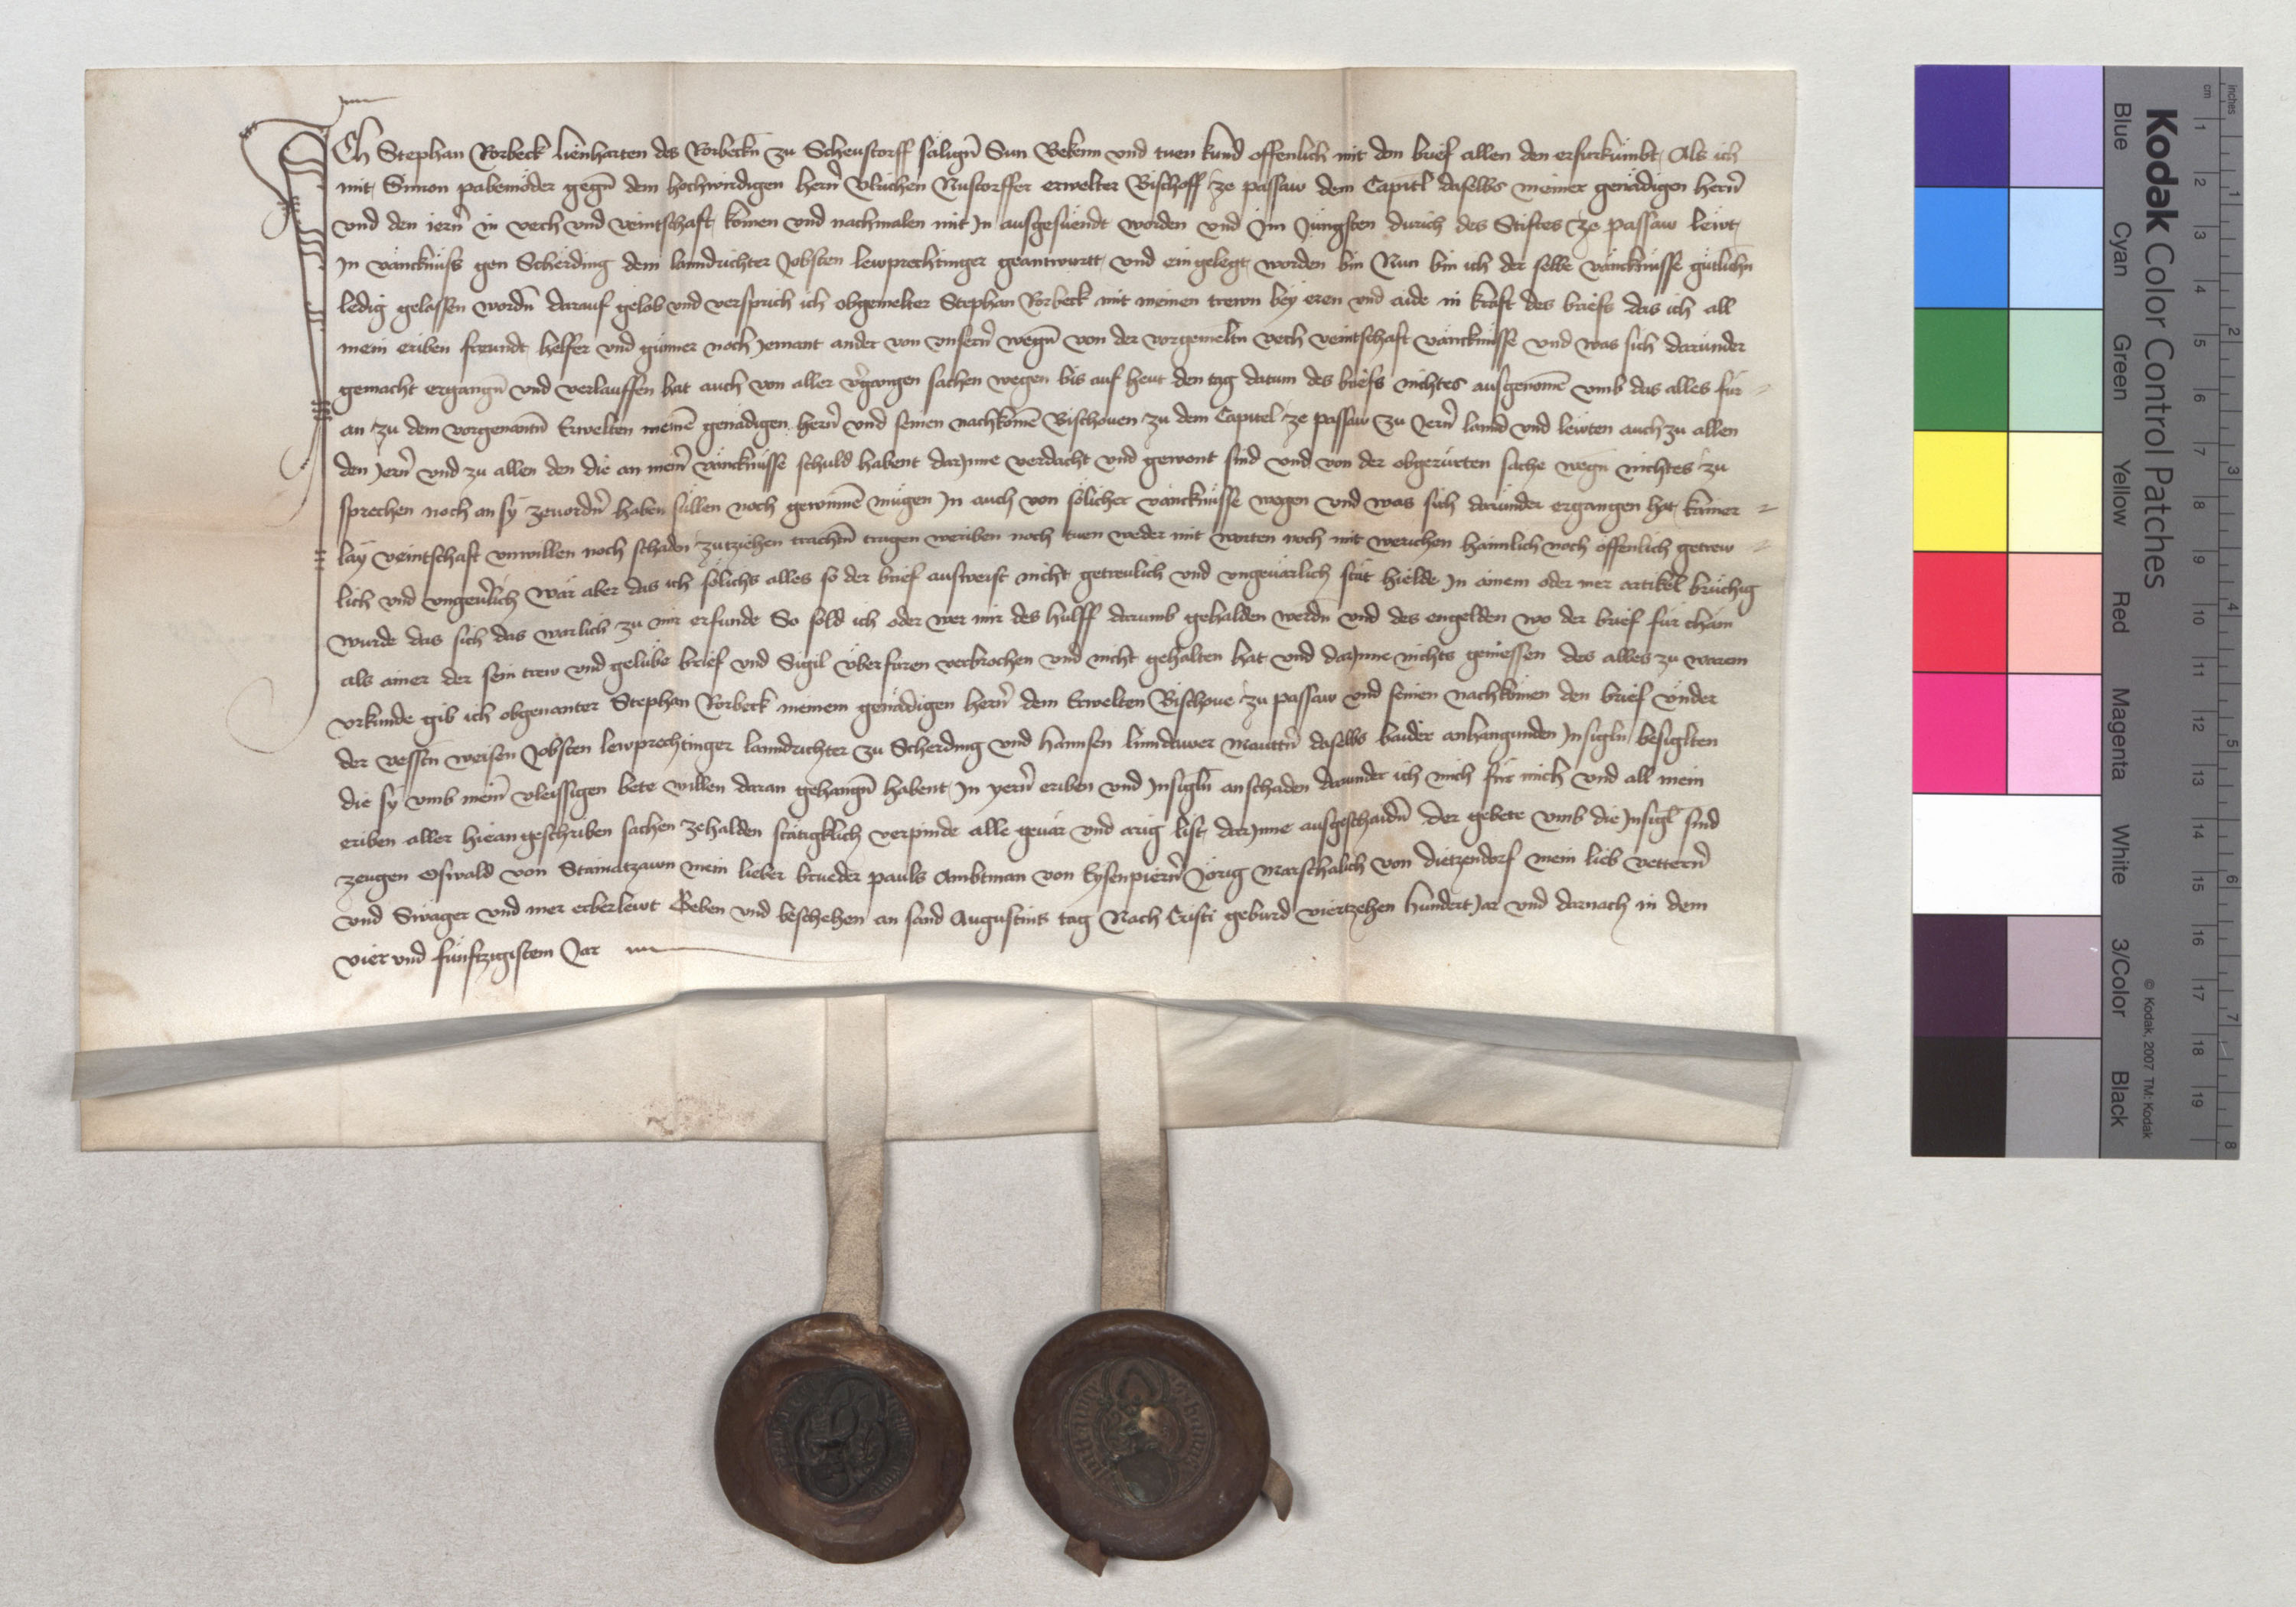 Ich Stephan Rorbeck Lienharten des Rorbeckñ zu Scheustorff säligñ Sun Bekenn und tuen kund offenlich mit dem brief allen den er furkumbt Als ich
mit Simon pabemöder gegñ dem hochwirdigen herñ Ulrichen Nustorffer erwelter Bischoff ze passaw dem Capitl daselbs meiner genädigen herñ
und den ierñ in vech und veintschaft komen und nachmalen mit In ausgesüendt worden und Im Jüngsten durich des Stiftes ze passaw lewt
In vänckhnüss gen Scherding dem lanndrichter Jobsten lewprechtinger geantwurtt und eingelegt worden bin Nun bin ich der selbe vänckhnüsse gütlichñ
ledig gelassen wordñ darauf gelob und versprich ich obgemelter Stephan Rorbeck mit meinen trewn bey eren und aide in kraft des briefs das ich all
mein eriben freundt helffer und günner noch Jemant ander von unserñ wegñ von der vorgemeltñ vech veintschaft vänckhnüsse und was sich darunder
gemacht ergangñ und verlauffen hat auch von aller vergangen sachen wegen bis auf heut den tag datum des briefs nichtes ausgenomē umb das alles für
an zu dem vorgenantñ Erwelten meinē genädigen herñ und seinen nachkomē Bischoven zu dem Capitel ze passaw zu Jerñ lannd und lewten auch zu allen
den Jerñ und zu allen den die an meinr vänckhnüsse schuld habent darJnne verdacht und gewont sind und von der obgerürten sache wegñ nichtes zu
sprechen noch an sy zevordrñ haben süllen noch gewinnē mügen In auch von sölicher vänckhnüsse wegen und was sich darunder ergangen hat kainer
lay veintschaft unwillen noch schaden zutziehen trachtñ tragen weriben noch tuen weder mit worten noch mit werichen haimlich noch öffenlich getrew
lich und ungeverlich wär aber das ich sölichs alles so der brief ausweist nicht getreulich und ungevärlich stät hielde In ainem oder mer artikel brüchig
wurde das sich das warlich zu mir erfunde So sold ich oder wer mir des hulff darumb gehalden werdñ und des engelden wo der brief für chäm
als ainer der sein trew und gelübe brief und Sigil überfaren verbrochen und nicht gehalten hat und darJnne nichts geniessen des alles zu warem
urkunde gib ich obgenanter Stephan Rorbeck meinem genädigen herñ dem Erwelten Bischove zu passaw und seinen nachkömen den brief under
der vessñ weisen Jobsten lewprechtinger lanndrichter zu Scherding und hannsen linndawer mauttñ daselbs baider anhangunden Insigln besiglten
die sy umb meinr vleissigen bete willen daran gehangñ habent In yerñ eriben und Insigln an schaden darunder ich mich für mich und all mein
eriben aller hie an geschriben sachen zehalden stätigklich verpinde alle gevär und arig list darJnne ausgeschaidñ der gebete umb die Insigl sind
zeugen Oswald von Stainatzawn mein lieber brueder pauls Ambtman von Eysenpierñ Jörig marschalich von dietzendorf mein lieb vettern
und Swager und mer erberlewt Geben und beschehen an sand Augustins tag Nach Cristi geburd viertzehen hundert Jar und darnach in dem
vier und fünftzigistem Jar
Kodak Color Control Patches
Blue Cyan Green Yellow Red Magenta White 3/Color Black
© Kodak, 2007 TM: Kodak
inches 1 2 3 4 5 6 7 8
cm 1 2 3 4 5 6 7 8 9 10 11 12 13 14 15 16 17 18 19